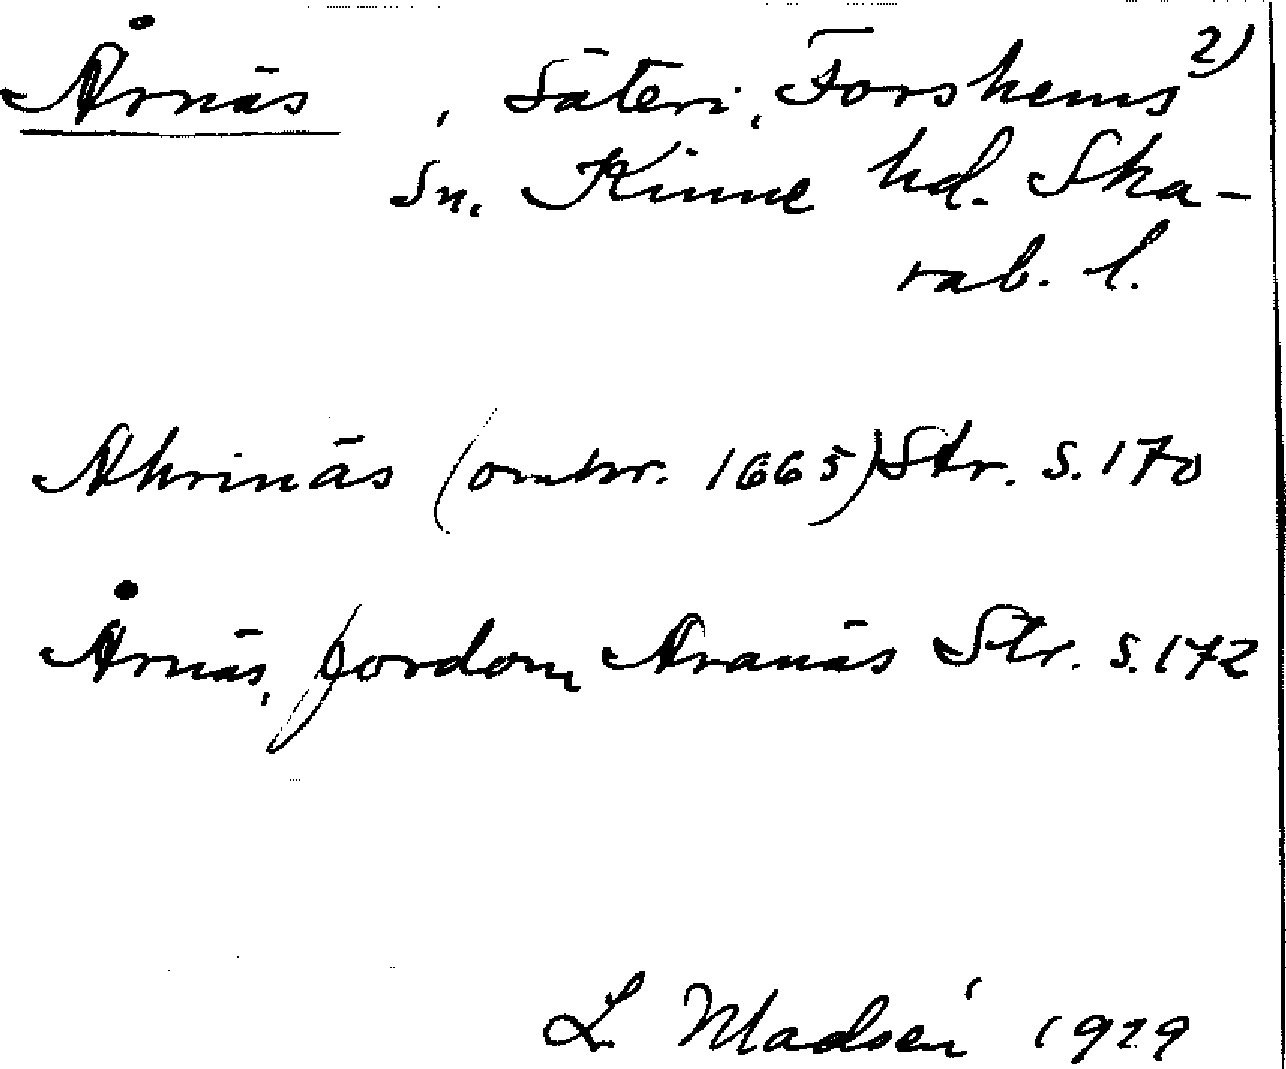 Årnäs, Säteri, Forshems 2)
sn. Kinne hd. Ska-
rab. l.
Ahrinäs (omkr. 1665) Str. s. 170
Årnäs, fordom Aranäs Str. s. 172
L Madsén 1929